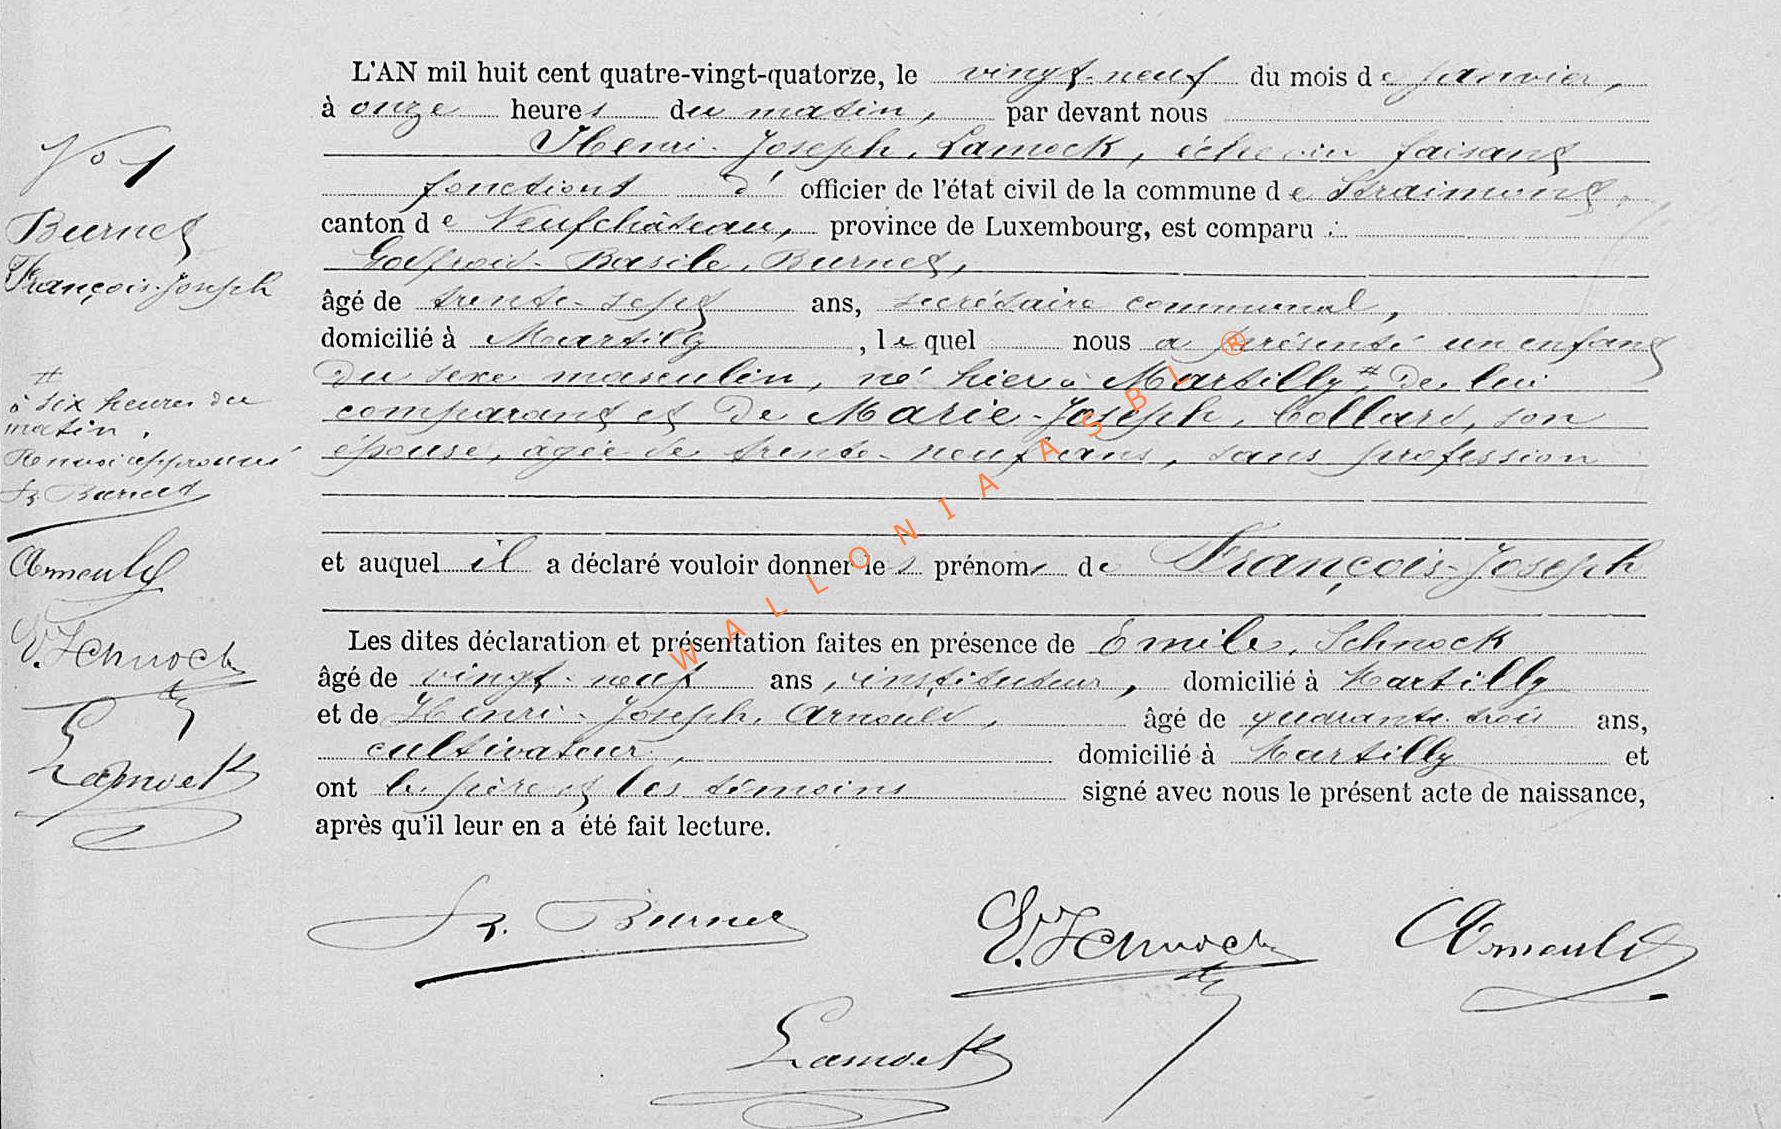 L'AN mil huit cent quatre-vingt-quatorze, le vingt-neuf du mois de janvier,
à onze heures du matin, par devant nous
Henri-Joseph Lamock, échevin faisant
fonctions d' officier de l'état civil de la commune de Straimont,
canton de Neufchâteau, province de Luxembourg, est comparu :
Godfroid-Basile Burnet,
âgé de trente-sept ans, secrétaire communal,
domicilié à Martilly, lequel nous a présenté un enfant
du sexe masculin, né hier à Martilly # de lui
comparant et de Marie-Joseph Collard, son
épouse, âgée de trente-neuf ans, sans profession
et auquel il a déclaré vouloir donner les prénoms de François-Joseph
Les dites déclaration et présentation faites en présence de Emile Schnock
âgé de vingt-neuf ans, instituteur, domicilié à Martilly
et de Henri-Joseph Arnould, âgé de quarante-trois ans,
cultivateur, domicilié à Martilly et
ont le père et les témoins signé avec nous le présent acte de naissance,
après qu'il leur en a été fait lecture.
Burnet
E. Schnock
Arnould
Lamock
No 1
Burnet
François-Joseph
#
à six heures du
matin.
Renvoi approuvé
Burnet
Arnould
E. Schnock
Lamock
WALLONIA ASBL ®